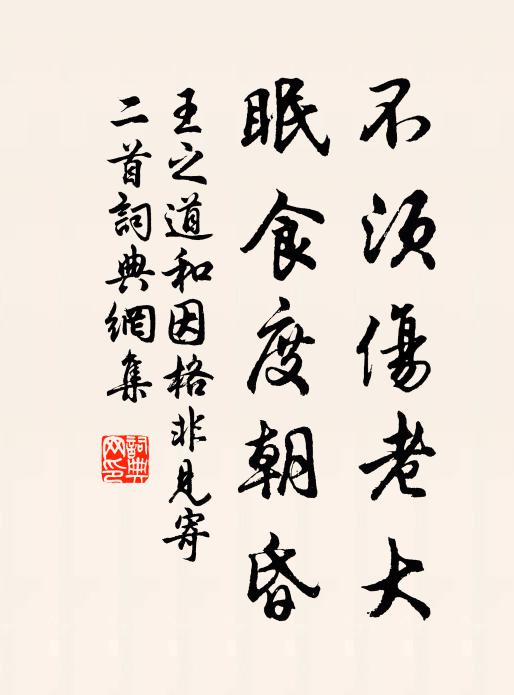 不須傷老大
眠食度朝昏
王之道和因格非見寄
二首詞典網集
詞典
网印